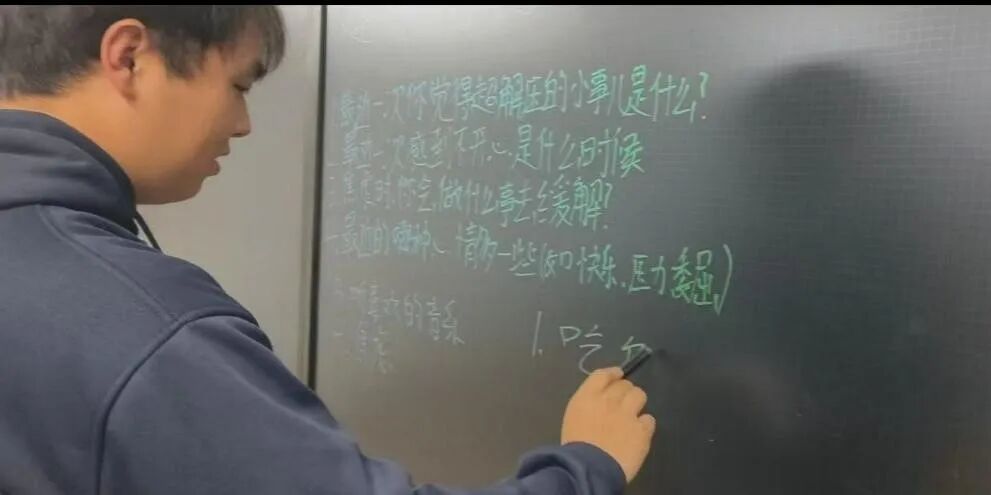 最近一次你觉得超解压的小事儿是什么?
二.最近一次感到不开心是什么时候
三.焦虑时你会做什么事去缓解?
最近的哪种心情多一些(如快乐、压力委屈)
喜欢的音乐
1.吃